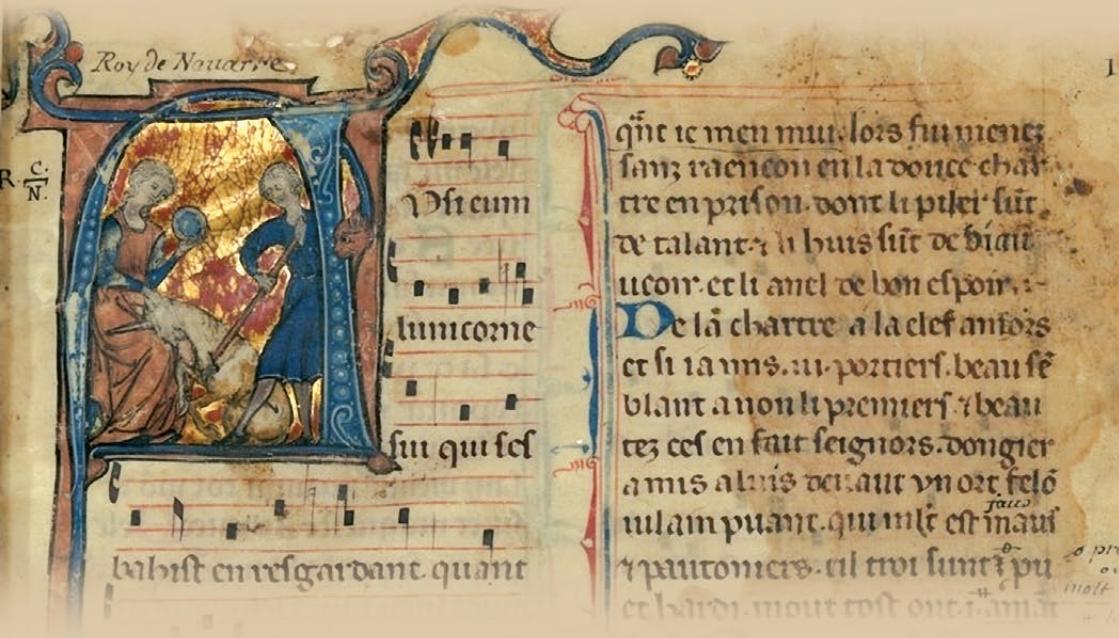 Roy de Nauarre
R. C. N.
Ausi cum
lunicorne
sui qui ses
bahist en resgardant. quant
qñt ie men mui. lors fui menez
sanz raencon en la douce char
tre en prison. dont li piler sūt
de talant ⁊ li huis sūt de biau
ueoir. et li anel de bon espoir.
De la chartre a la clef amors
et si i a mis .iii. portiers. beau sē
blant a non li premiers. ⁊ beau
tez ces en fait seignors. dongier
a mis a luis deuant vn ort felō
uilain puant. qui mlt est maus
⁊ pautoniers. cil troi sunt ⁊ pu
et hardi. mout tost ont i. amāt